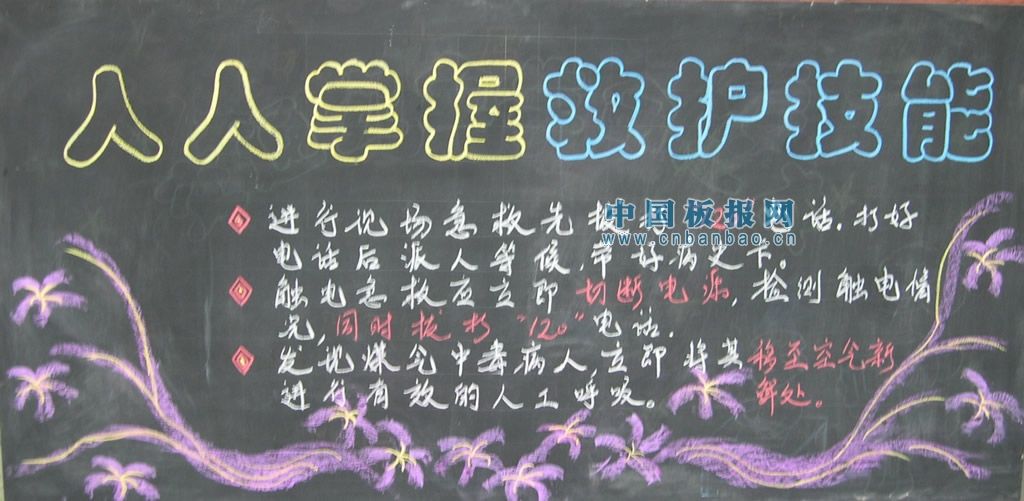 人人掌握救护技能
进行现场急救先拨打话.打好
中国板报网
www.cnbanbao.cn
电话后派人等候,带好病史卡。
触电急救应立即切断电源,检测触电情
况,同时拨打"120"电话.
发现煤气中毒病人,立即将其移至空气新
鲜处。
进行有效的人工呼吸。